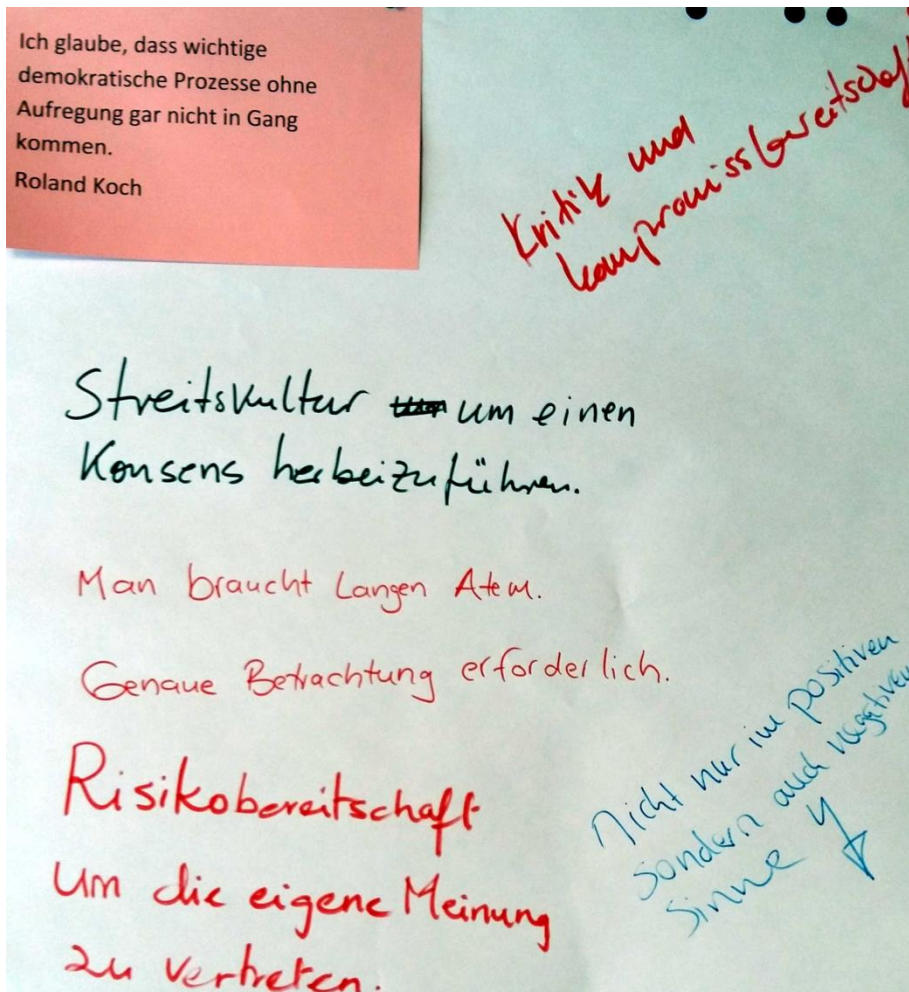 Ich glaube, dass wichtige
demokratische Prozesse ohne
Aufregung gar nicht in Gang
kommen.
Roland Koch
Kritik und
kompromissbereitschaft
Streitskultur um einen
Konsens herbeizuführen.
Man braucht Langen Atem.
Genaue Betrachtung erforderlich.
Risikobereitschaft
um die eigene Meinung
zu vertreten.
Nicht nur im positiven
sondern auch negativen
Sinne